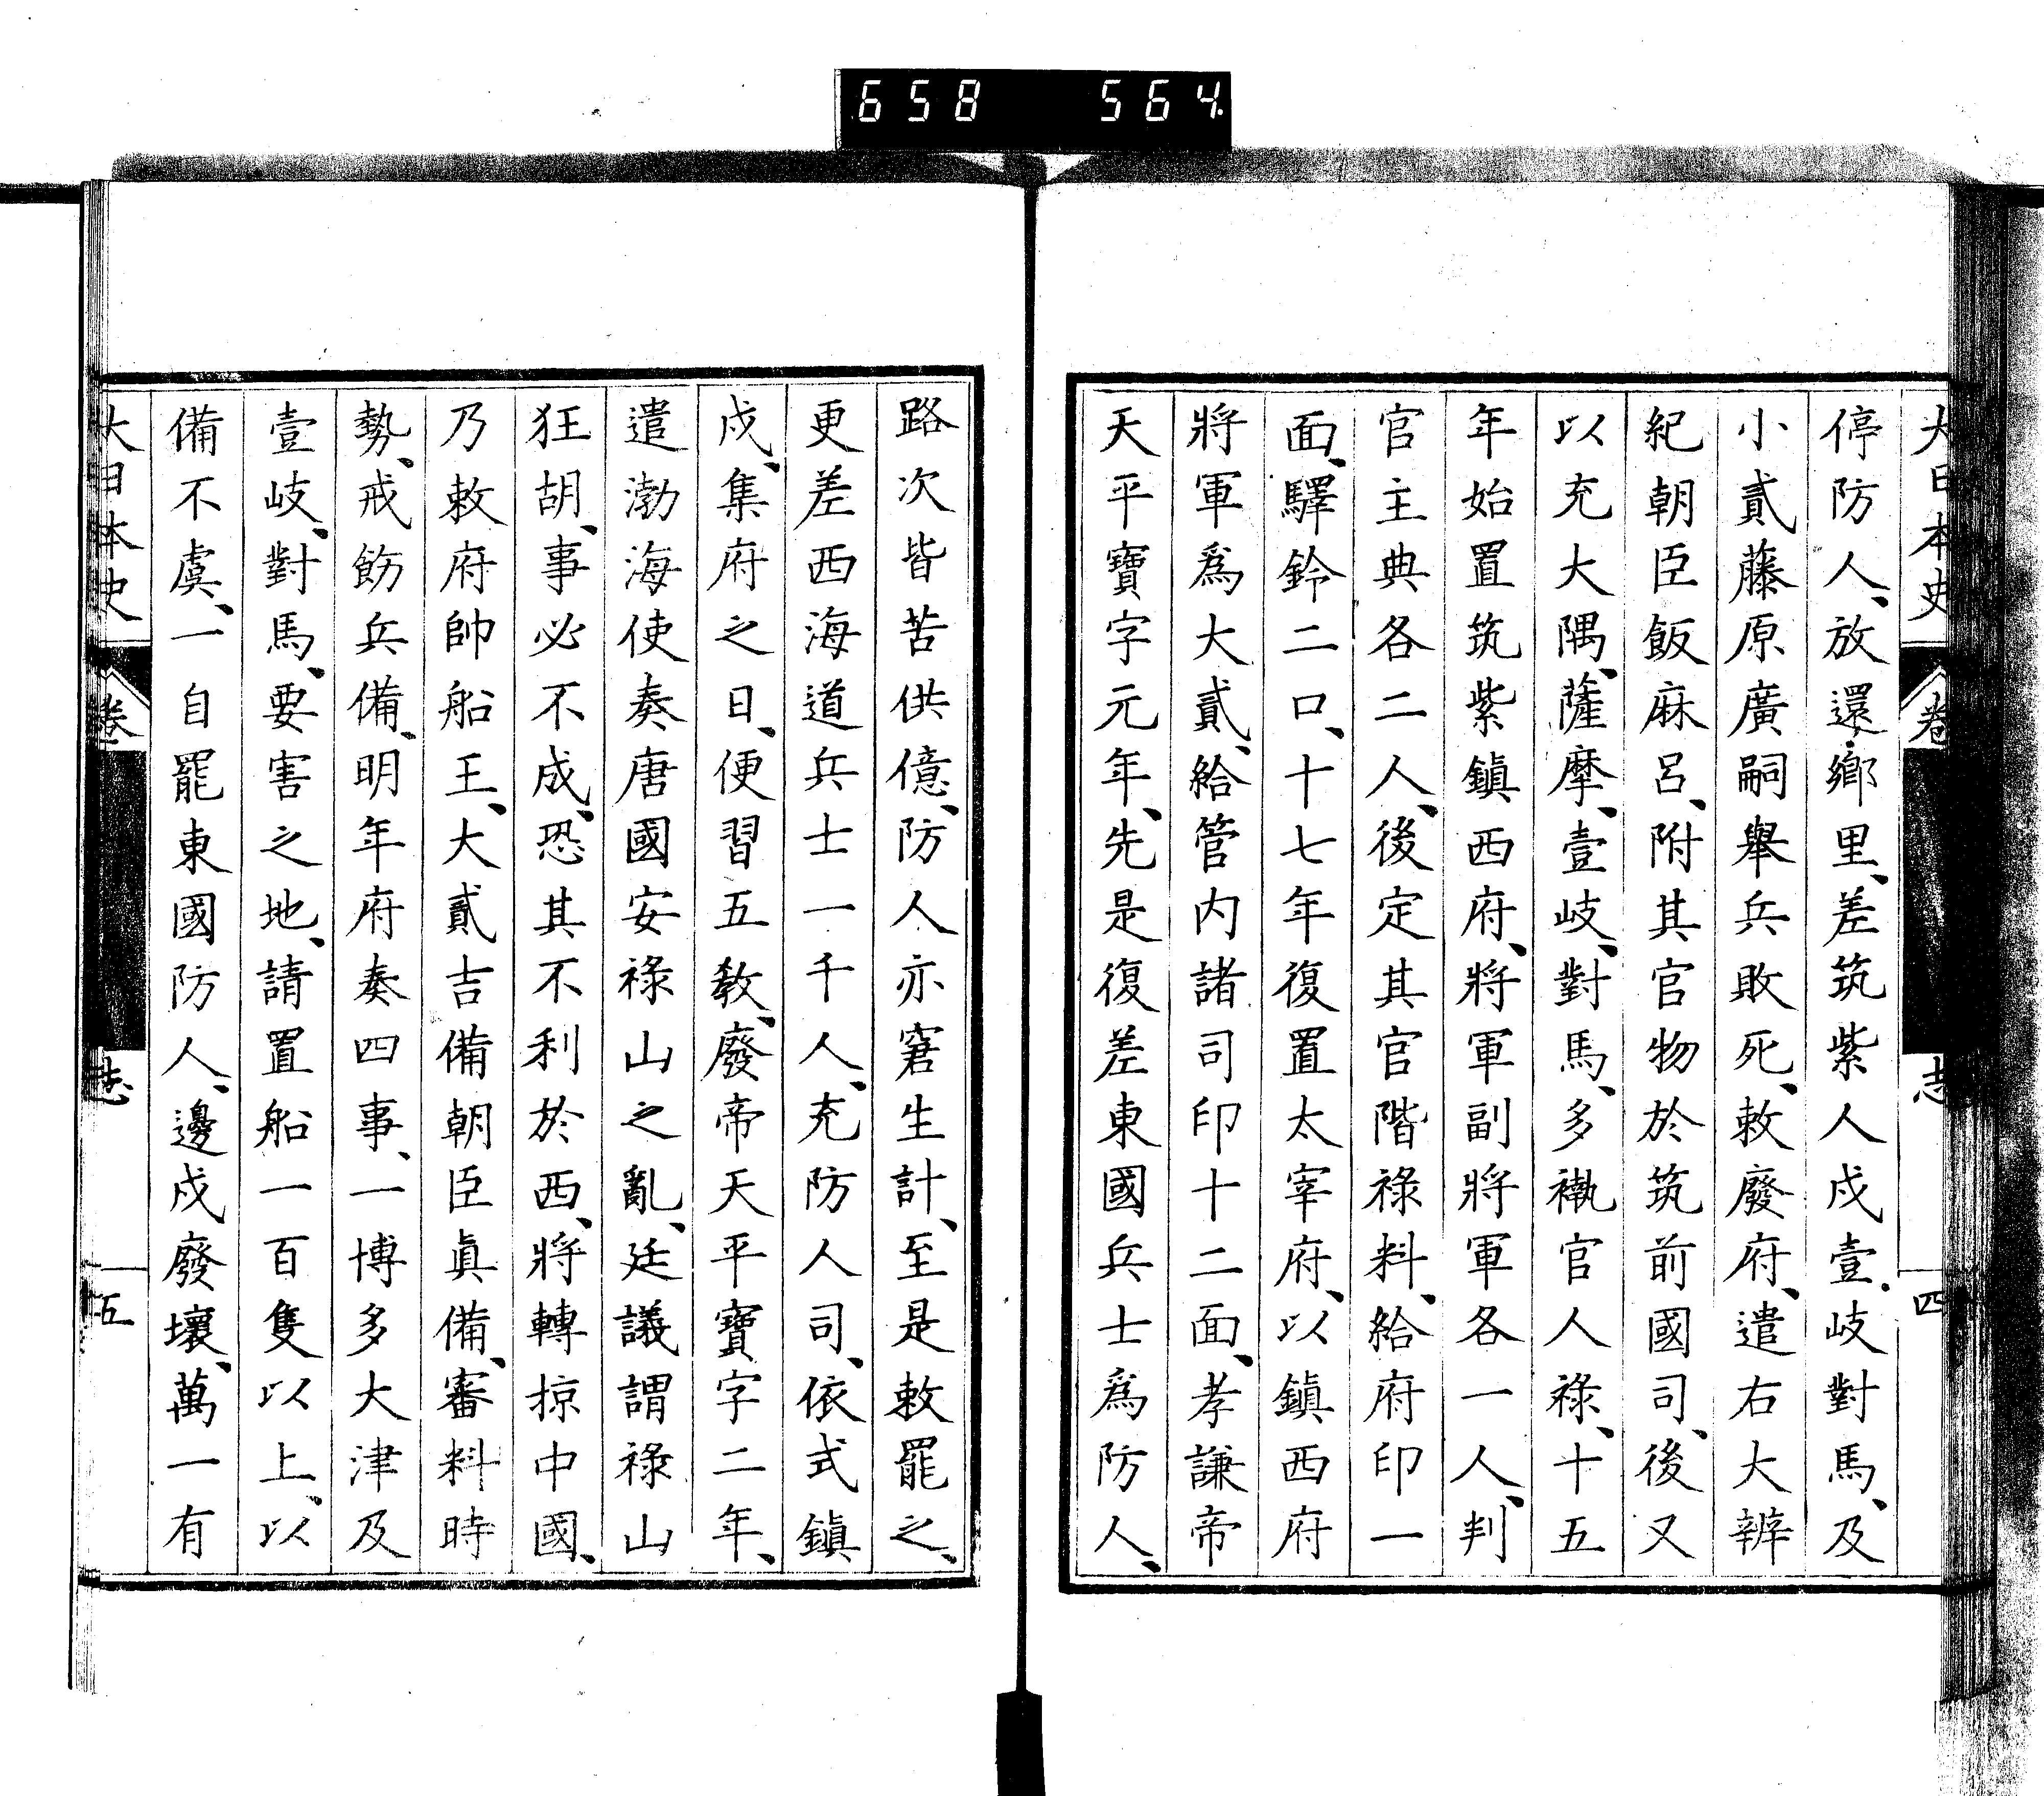 658 564
大日本史 卷 志 四
停防人、放還鄉里、差筑紫人戍壹岐對馬、及
小貳藤原廣嗣舉兵敗死、敕廢府、遣右大辨
紀朝臣飯麻呂、附其官物於筑前國司、後又
以充大隅、薩摩、壹岐、對馬、多褹官人祿、十五
年始置筑紫鎭西府、將軍副將軍各一人、判
官主典各二人、後定其官階祿料、給府印一
面、驛鈴二口、十七年復置太宰府、以鎭西府
將軍爲大貳、給管内諸司印十二面、孝謙帝
天平寶字元年、先是復差東國兵士爲防人、
路次皆苦供億、防人亦窘生計、至是敕罷之、
更差西海道兵士一千人、充防人司、依式鎭
戍、集府之日、便習五敎、廢帝天平寶字二年、
遣渤海使奏唐國安祿山之亂、廷議謂祿山
狂胡、事必不成、恐其不利於西、將轉掠中國、
乃敕府帥船王、大貳吉備朝臣眞備、審料時
勢、戒飭兵備、明年府奏四事、一博多大津及
壹岐、對馬、要害之地、請置船一百隻以上、以
備不虞、一自罷東國防人、邊戍廢壞、萬一有
大日本史 卷 志 五